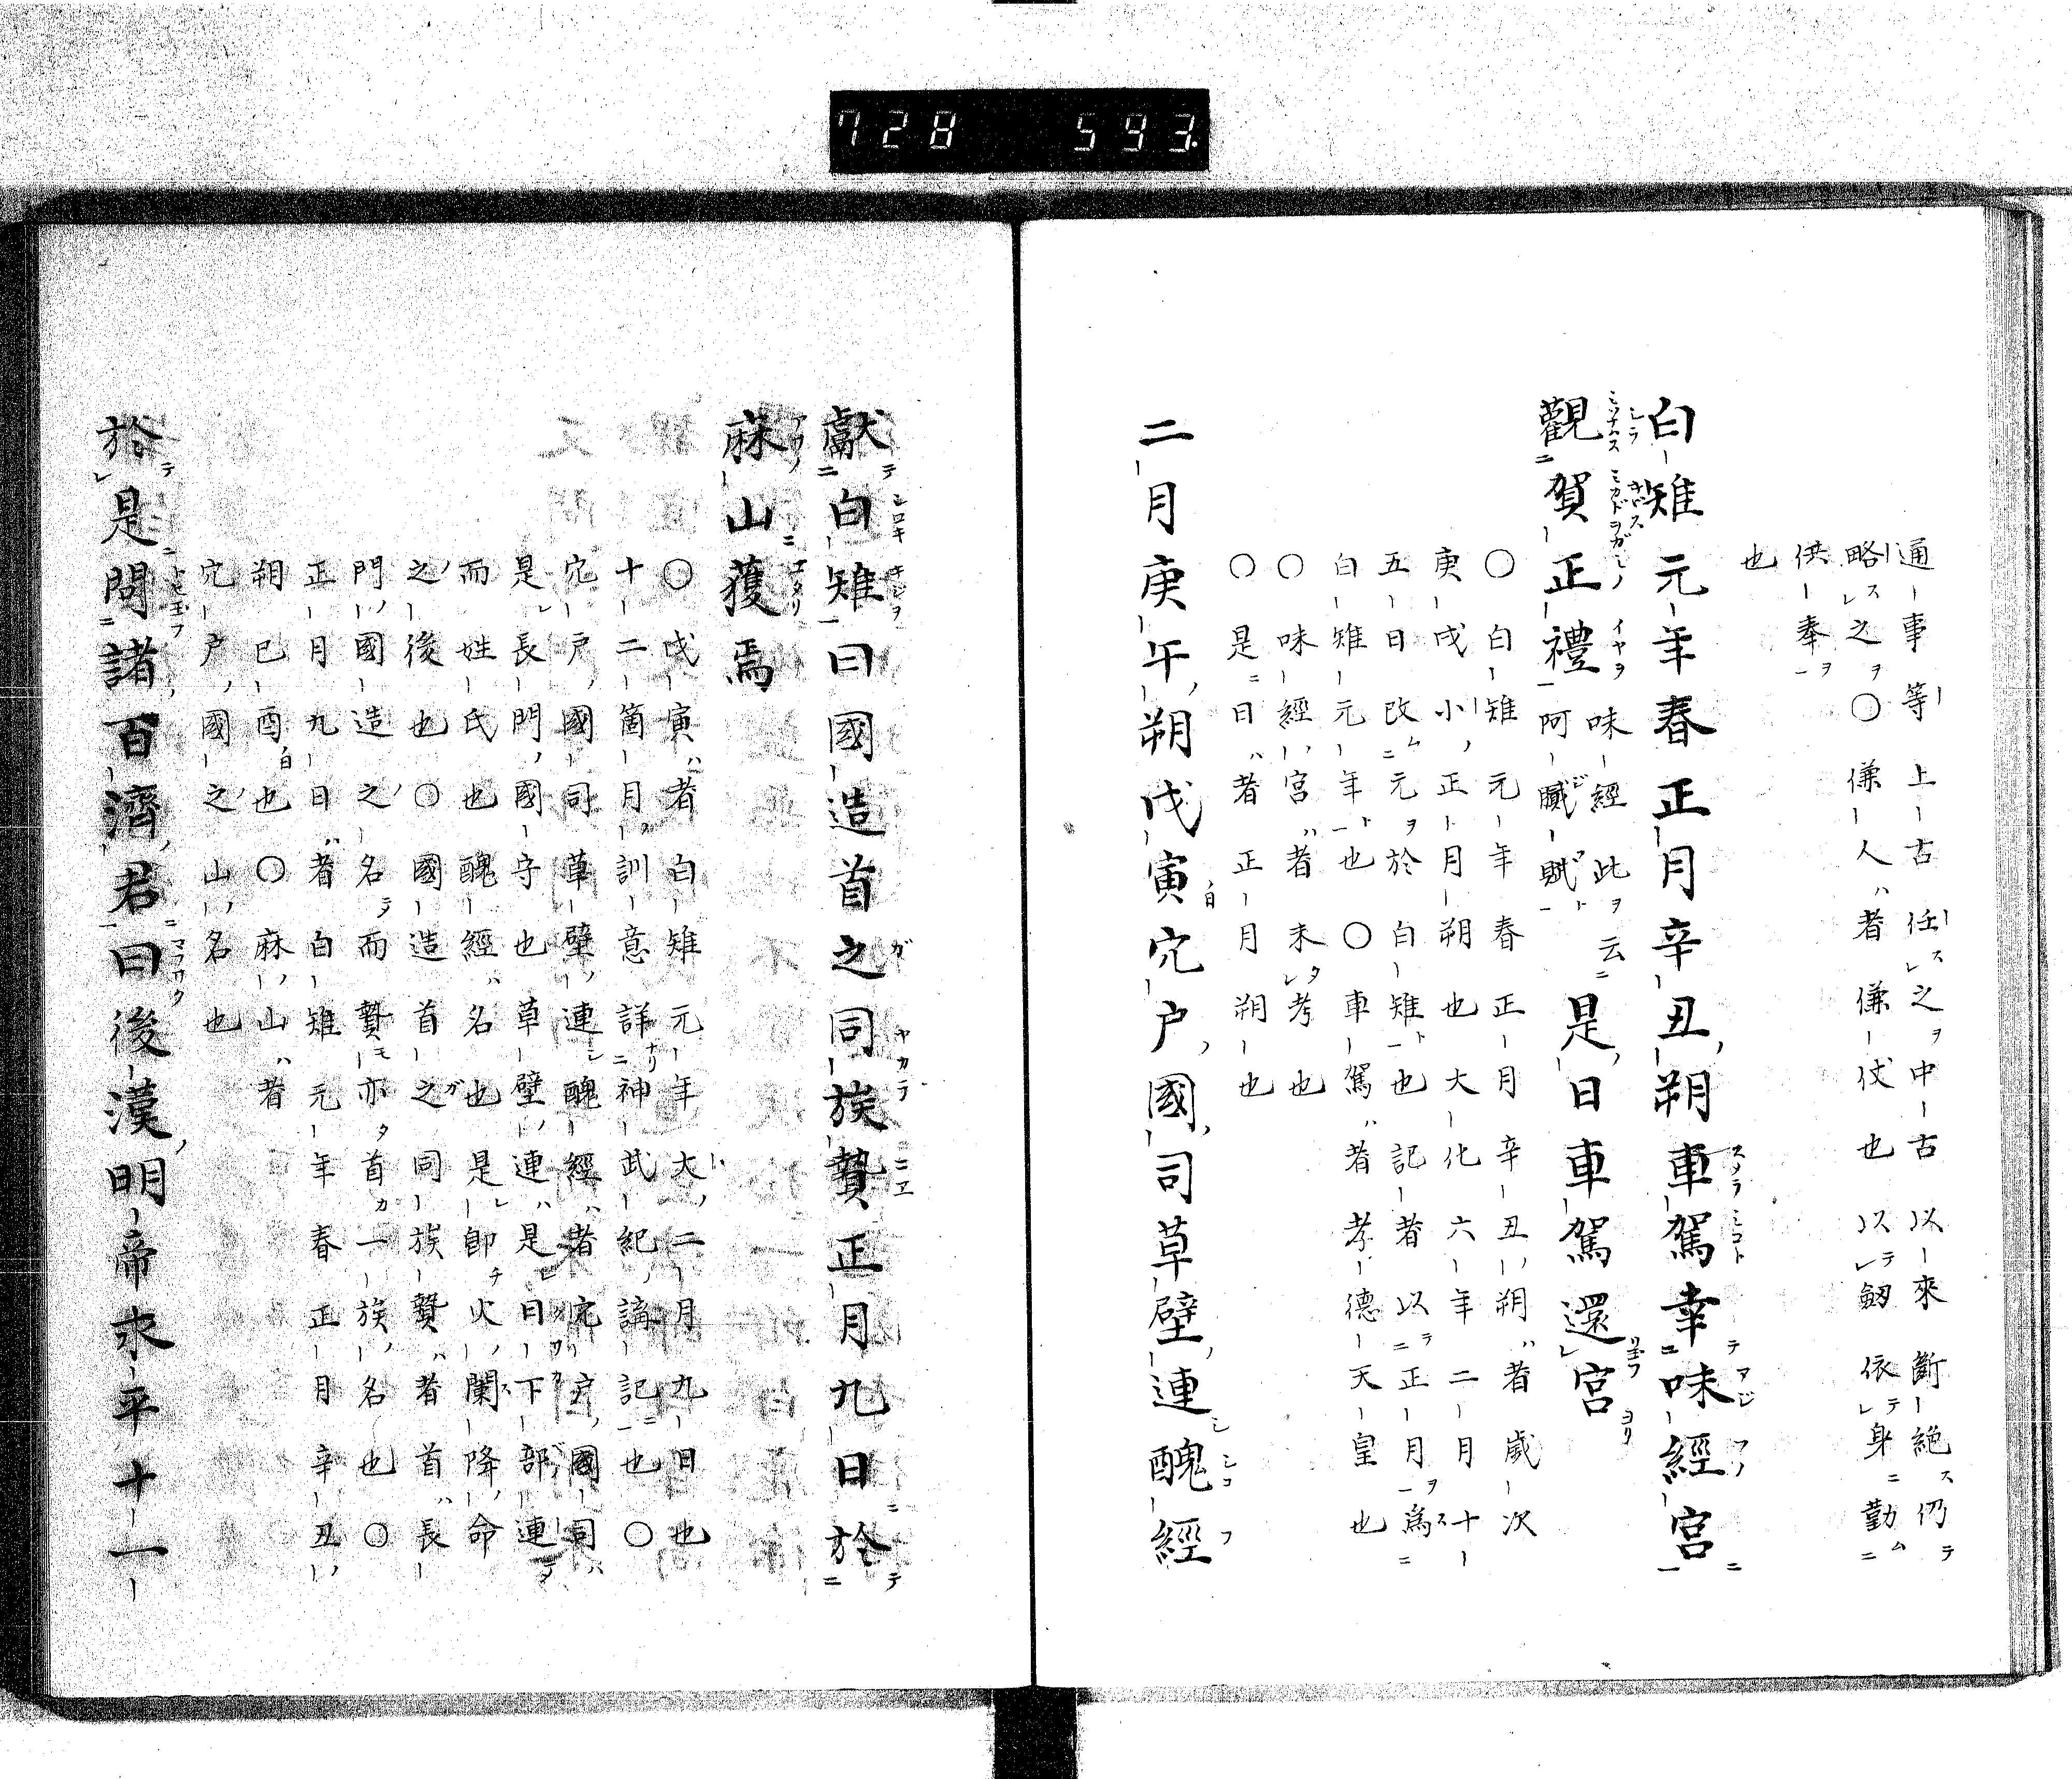 728 593.
通事等上古任之中古以來斷絶仍
略之〇傔人者傔仗也以劔依身勤
供奉
也
白雉元年春正月辛丑朔車駕幸味經宮
觀賀正禮味經此云阿膩賦是日車駕還宮
〇白雉元年春正月辛丑朔者歲次
庚戌小正月朔也大化六年二月十
五日改元於白雉也記者以正月為
白雉元年也〇車駕者孝德天皇也
〇味經宮者未考也
〇是日者正月朔也
二月庚午朔戊寅宂戶國司草壁連醜經
獻白雉曰國造首之同族贄正月九日於
麻山獲焉
〇戊寅者白雉元年大二月九日也
十二箇月訓意詳神武紀講記也〇
宂戶國司草壁連醜經者宂戶國司
是長門國守也草壁連是日下部連
而姓氏也醜經名也是卽火闌降命
之後也〇國造首之同族贄者首長
門國造之名而贄亦首一族名也〇
正月九日者白雉元年春正月辛丑
朔己酉也〇麻山者
宂戶國之山名也
於是問諸百濟君曰後漢明帝永平十一